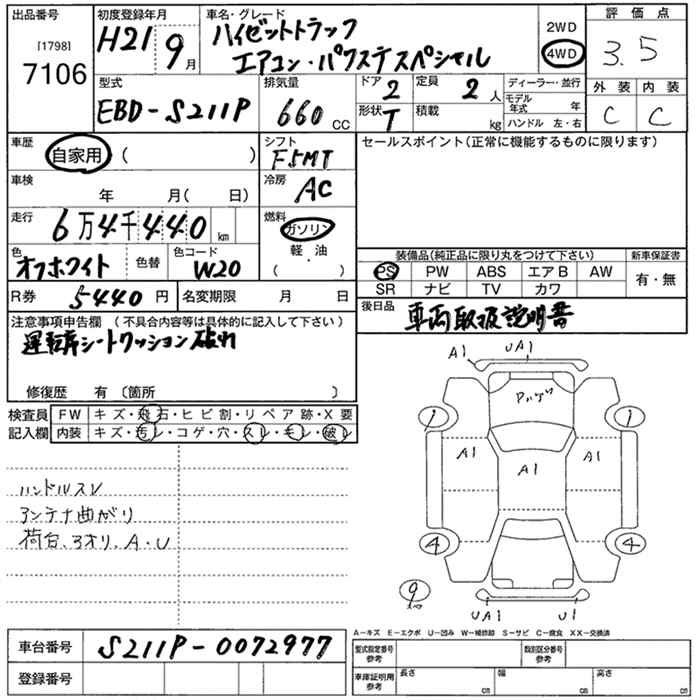 出品番号
[1798]
7106
初度登録年月
H21 9月
車名・グレード
ハイゼットトラック
エアコン・パワステスペシャル
2WD
4WD
評価点
3.5
外装 内装
C C
型式
EBD-S211P
排気量
660 CC
ドア 2
形状 T
定員 2人
積載 kg
ディーラー・並行
モデル年式 年
ハンドル 左・右
車歴
自家用 ( )
車検
年 月( 日)
走行
6万4千440 km
色
オフホワイト
色替
色コード
W20
シフト
F5MT
冷房
AC
燃料
ガソリン
軽・油
( )
セールスポイント(正常に機能するものに限ります)
装備品(純正品に限り丸をつけて下さい)
PS PW ABS エアB AW
SR ナビ TV カワ
新車保証書
有・無
R券 5440 円
名変期限 月 日
後日品
車両取扱説明書
注意事項申告欄 (不具合内容等は具体的に記入して下さい)
運転席シートクッション破れ
修復歴 有 〔箇所 〕
検査員記入欄
FW キズ・飛石・ヒビ割・リペア跡・X要
内装 キズ・汚レ・コゲ・穴・スレ・モレ・破レ
ハンドルスレ
アンテナ曲がり
荷台、アオリ、A・U
A1 UA1
1 1
A1 A1 A1
4 4
9
UA1 U1
A-キズ E-エクボ U-凹み W-補修跡 S-サビ C-腐食 XX-交換済
車台番号
S211P-0072977
登録番号
型式指定番号参考
類別区分番号参考
車庫証明用参考
長さ cm
幅 cm
高さ cm